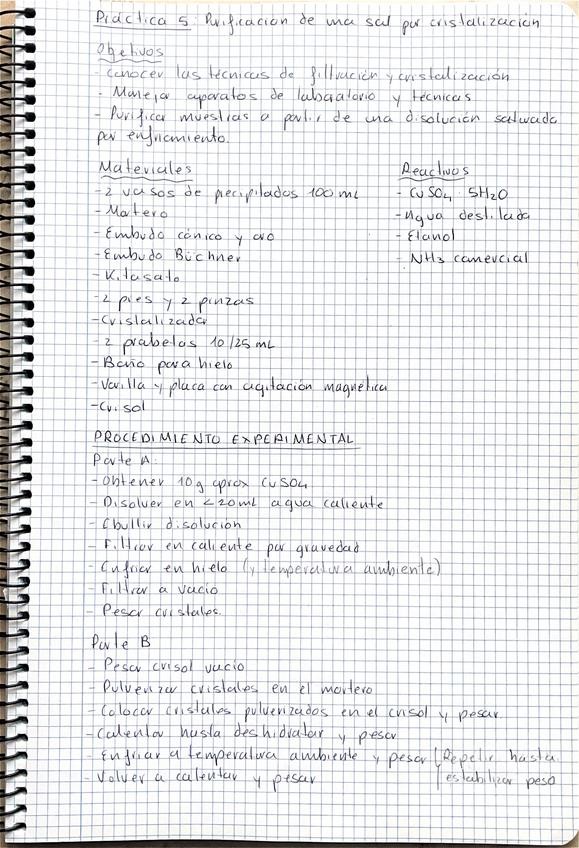 Práctica 5: Purificación de una sal por cristalización
Objetivos
- Conocer las técnicas de filtración y cristalización
- Manejar aparatos de laboratorio y técnicas
- Purificar muestras a partir de una disolución saturada
por enfriamiento.
Materiales
- 2 vasos de precipitados 100 mL
- Mortero
- Embudo cónico y aro
- Embudo Büchner
- Kitasato
- 2 pies y 2 pinzas
- Cristalizador
- 2 probetas 10/25 mL
- Baño para hielo
- Varilla y placa con agitación magnética
- Crisol
Reactivos
- CuSO4 · 5H2O
- Agua destilada
- Etanol
- NH3 comercial
PROCEDIMIENTO EXPERIMENTAL
Parte A:
- Obtener 10g aprox CuSO4
- Disolver en <20mL agua caliente
- Ebullir disolución
- Filtrar en caliente por gravedad
- Enfriar en hielo (y temperatura ambiente)
- Filtrar a vacío
- Pesar cristales.
Parte B
- Pesar crisol vacío
- Pulverizar cristales en el mortero
- Colocar cristales pulverizados en el crisol y pesar.
- Calentar hasta deshidratar y pesar
- Enfriar a temperatura ambiente y pesar
- Volver a calentar y pesar
Repetir hasta
estabilizar peso